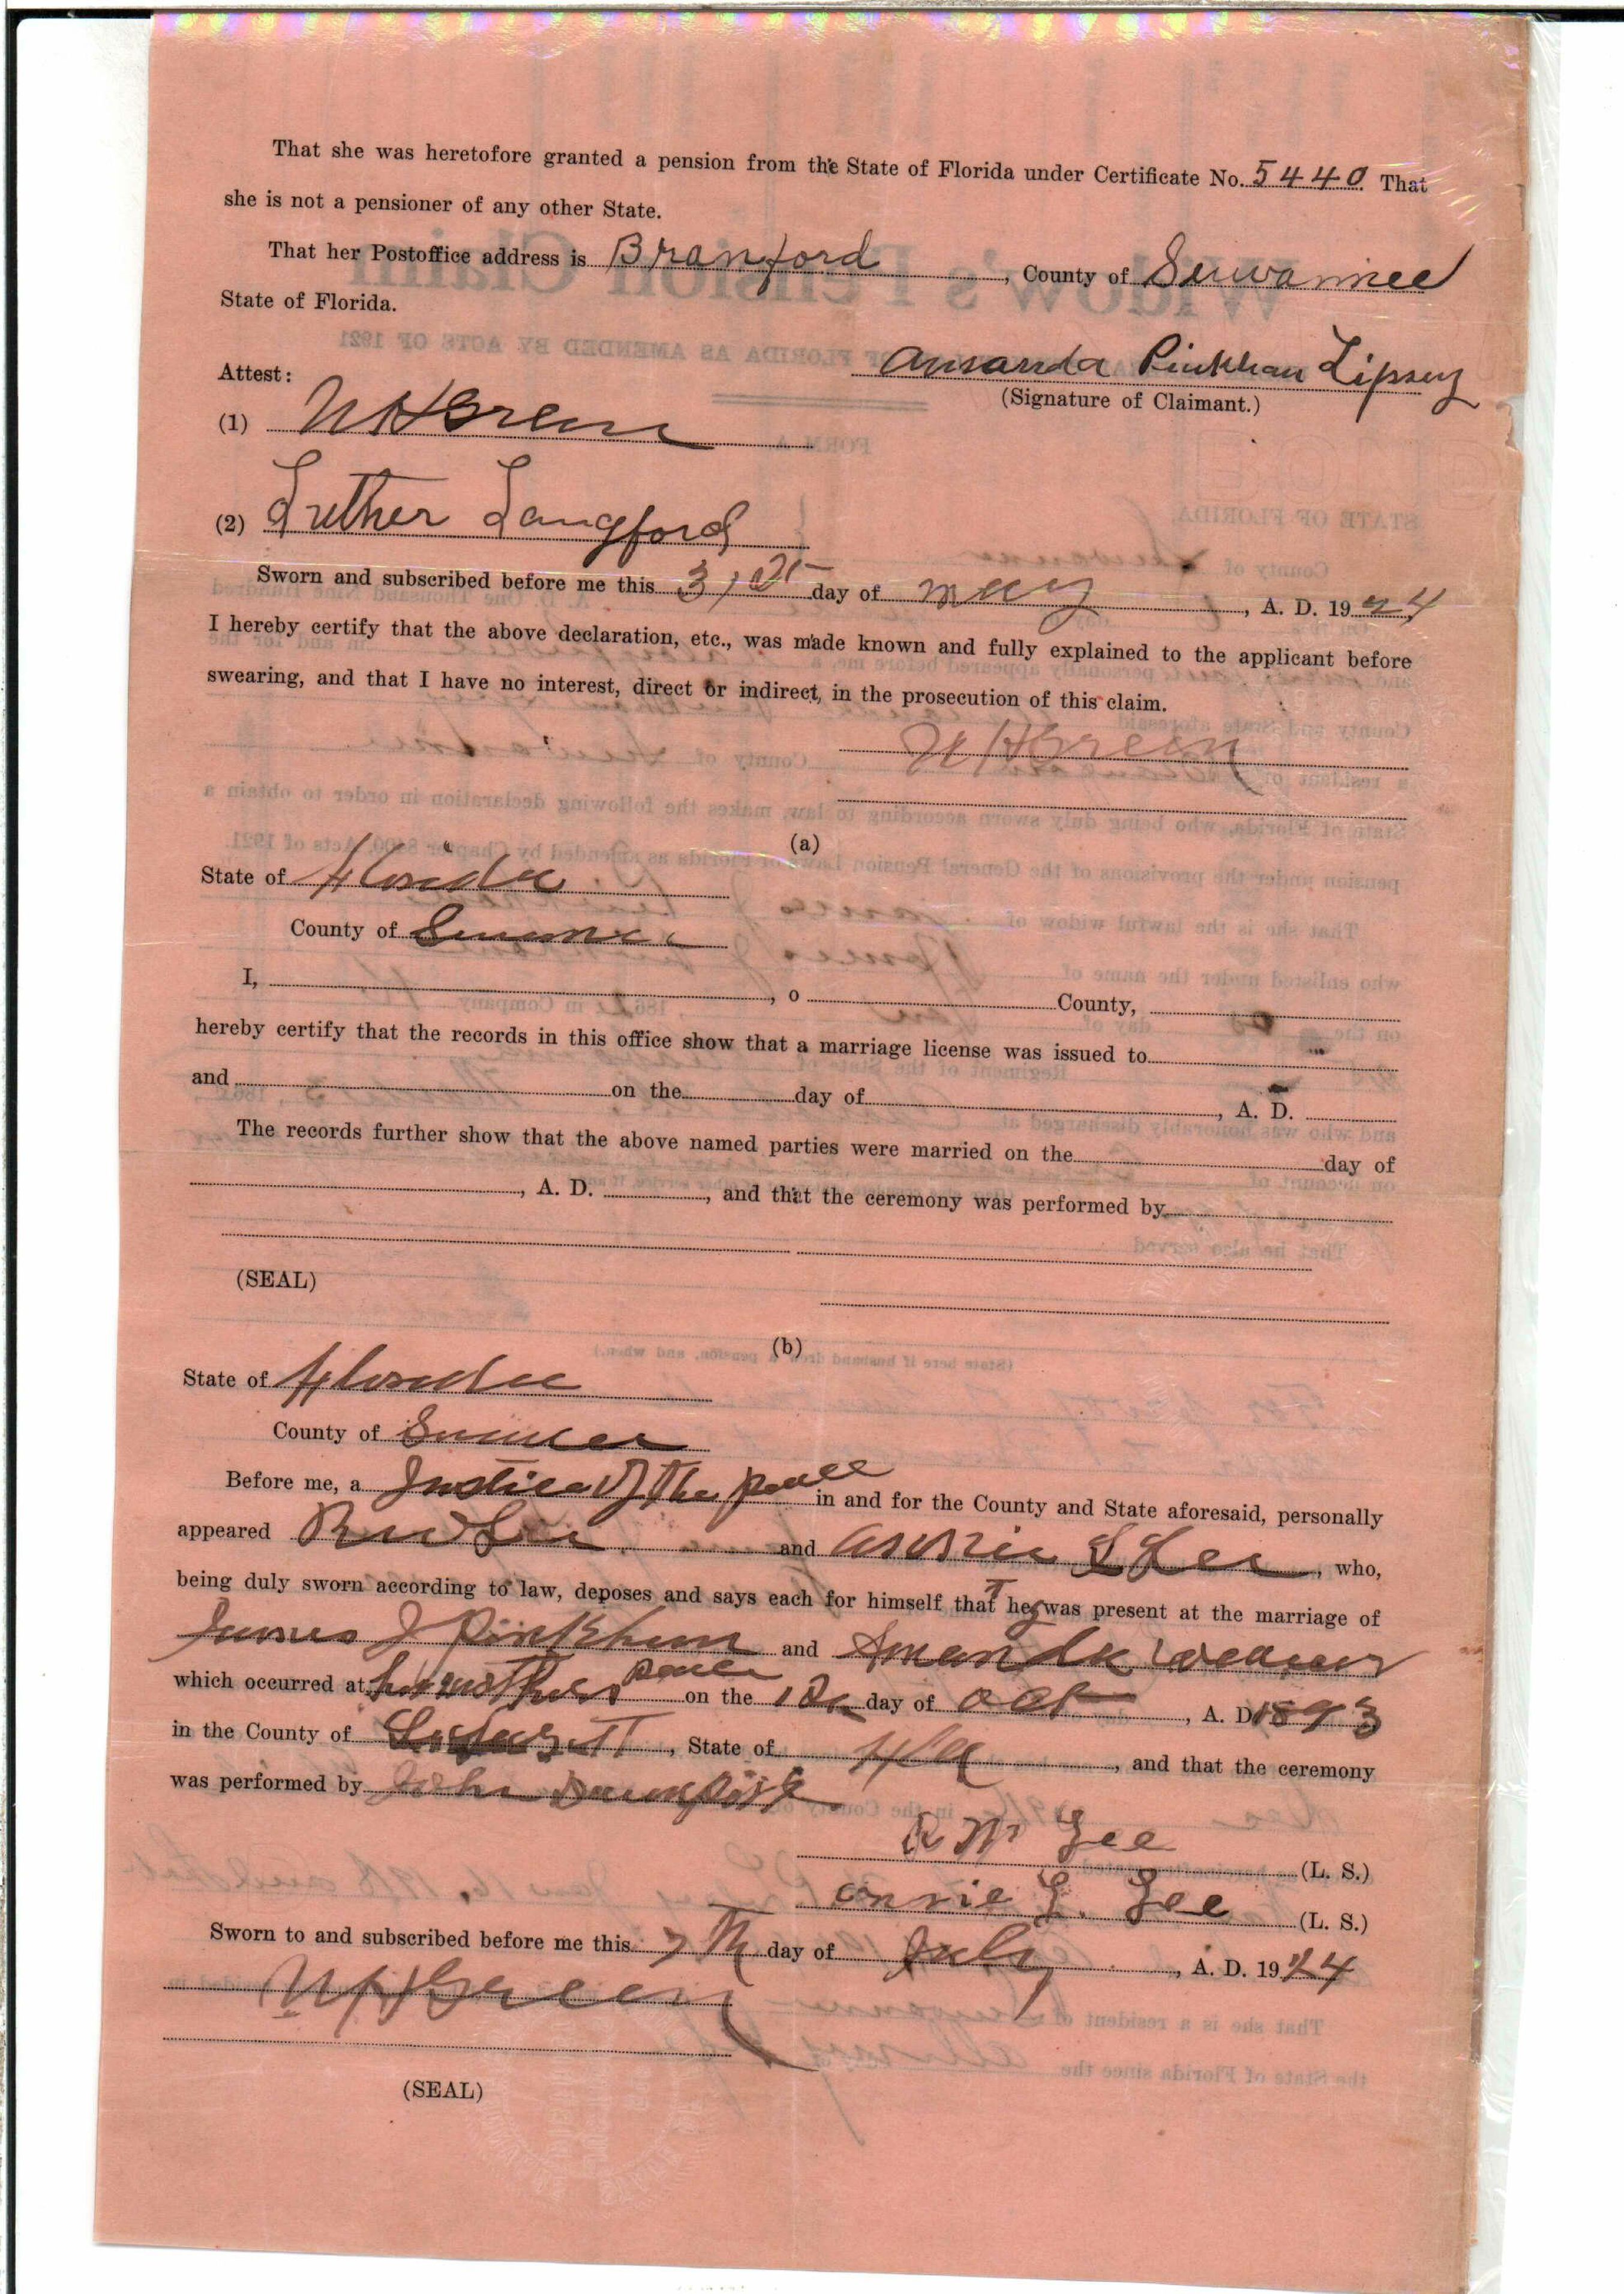 That she was heretofore granted a pension from the State of Florida under Certificate No. 5440 That
she is not a pensioner of any other State.
That her Postoffice address is Branford, County of Suwannee
State of Florida.
Amanda Pinkham Lipsey
Attest:
(Signature of Claimant.)
(1) W H Green
(2) Luther Langford
Sworn and subscribed before me this 31st day of may, A. D. 1924
I hereby certify that the above declaration, etc., was made known and fully explained to the applicant before
swearing, and that I have no interest, direct or indirect, in the prosecution of this claim.
W H Green
(a)
State of Florida
County of
I, , o County,
hereby certify that the records in this office show that a marriage license was issued to
and on the day of , A. D.
The records further show that the above named parties were married on the day of
, A. D. , and that the ceremony was performed by
(SEAL)
(b)
State of Florida
County of
Before me, a Justice of the peace in and for the County and State aforesaid, personally
appeared R W Lee and L Lee, who,
being duly sworn according to law, deposes and says each for himself that he was present at the marriage of
James J Pinkham and Amanda
which occurred at her mothers place on the day of Oct, A. D. 1893
in the County of Lafayett, State of Fla, and that the ceremony
was performed by John
R W Lee (L. S.)
Annie L. Lee (L. S.)
Sworn to and subscribed before me this 7th day of July, A. D. 1924
W H Green
(SEAL)